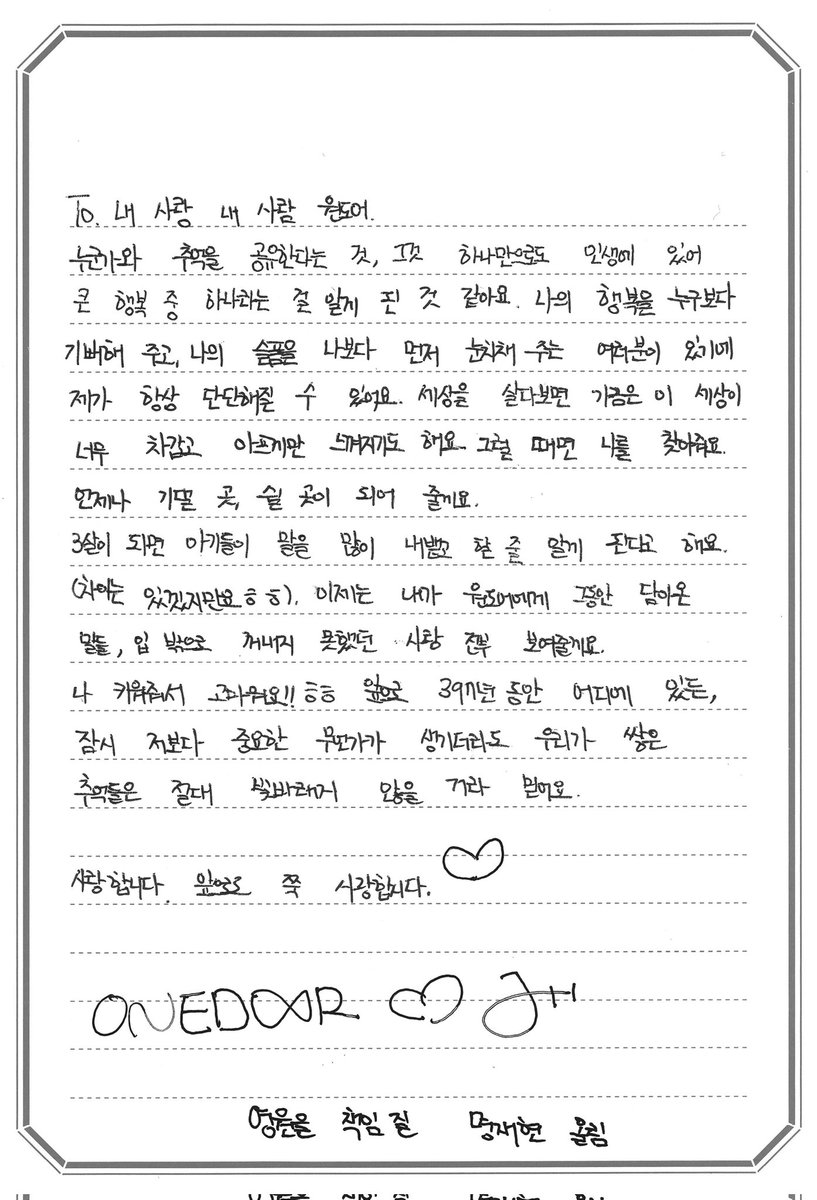 To. 내 사랑 내 사람 원도어.
누군가와 추억을 공유한다는 것, 그것 하나만으로도 인생에 있어
큰 행복 중 하나라는 걸 알게 된 것 같아요. 나의 행복을 누구보다
기뻐해 주고, 나의 슬픔을 나보다 먼저 눈치채 주는 여러분이 있기에
제가 항상 단단해질 수 있어요. 세상을 살다보면 가끔은 이 세상이
너무 차갑고 아프게만 느껴지기도 해요. 그럴 때면 나를 찾아줘요.
언제나 기댈 곳, 쉴 곳이 되어 줄게요.
3살이 되면 아기들이 말을 많이 내뱉고 할 줄 알게 된다고 해요.
(차이는 있겠지만요ㅎㅎ). 이제는 내가 원도어에게 그동안 담아온
말들, 입 밖으로 꺼내지 못했던 사랑 전부 보여줄게요.
나 키워줘서 고마워요!! ㅎㅎ 앞으로 397년 동안 어디에 있든,
잠시 저보다 중요한 무언가가 생기더라도 우리가 쌓은
추억들은 절대 빛바래지 않을 거라 믿어요.
사랑합니다. 앞으로 쭉 사랑합니다.
ONEDOOR JH
영원을 책임질 명재현 올림